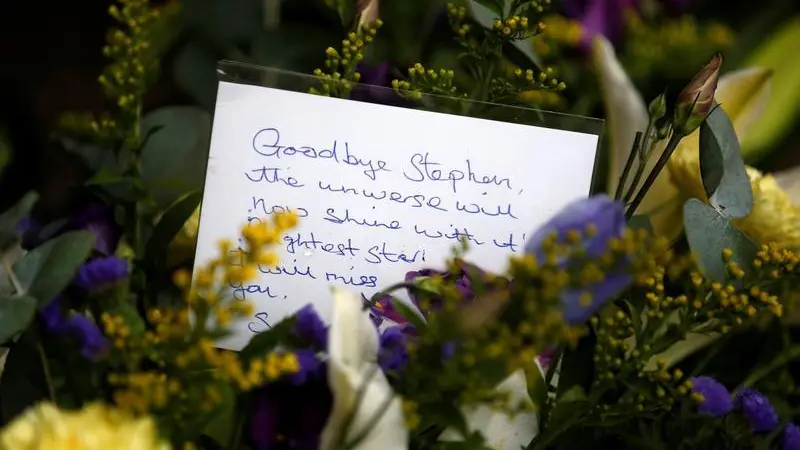 Goodbye Stephen,
the universe will
now shine with it's
brightest star.
I will miss
you,
S